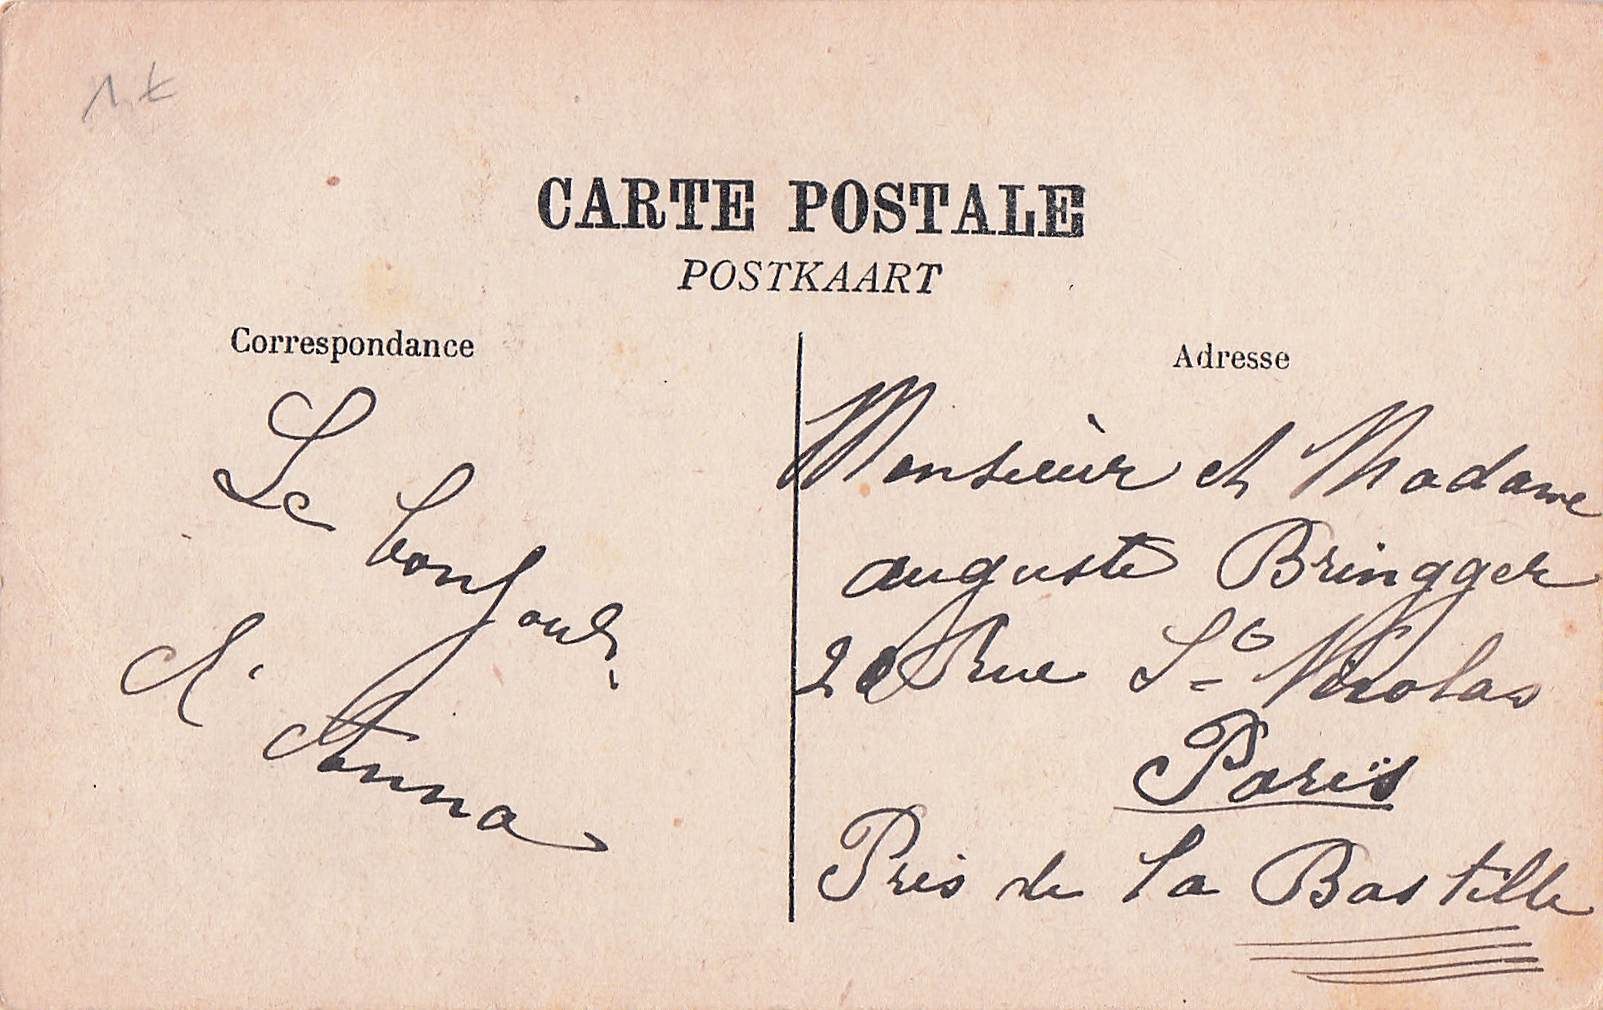 CARTE POSTALE
POSTKAART
Correspondance
Le bonjour
d'Anna
Adresse
Monsieur et Madame
auguste Bringger
Rue St Nicolas
Paris
Près de la Bastille